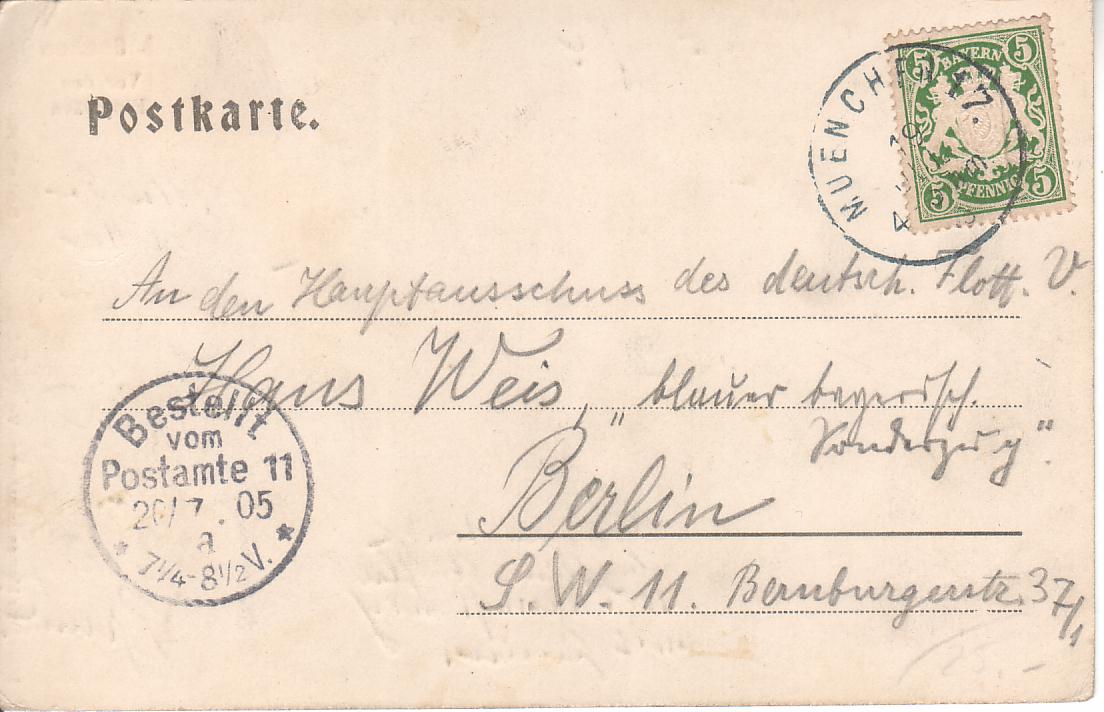 Postkarte.
BAYERN
5 5
5 5
PFENNIG
MUENCHEN 17.
An den Hauptausschuss des deutsch. Flott. V.
Hans Weis, "blauer bayerisch.
Sonderzug".
Berlin
S. W. 11. Bernburgerstr. 37/1
Bestellt
vom
Postamte 11
20/7. 05
a
* 7 1/4-8 1/2 V. *
25.-